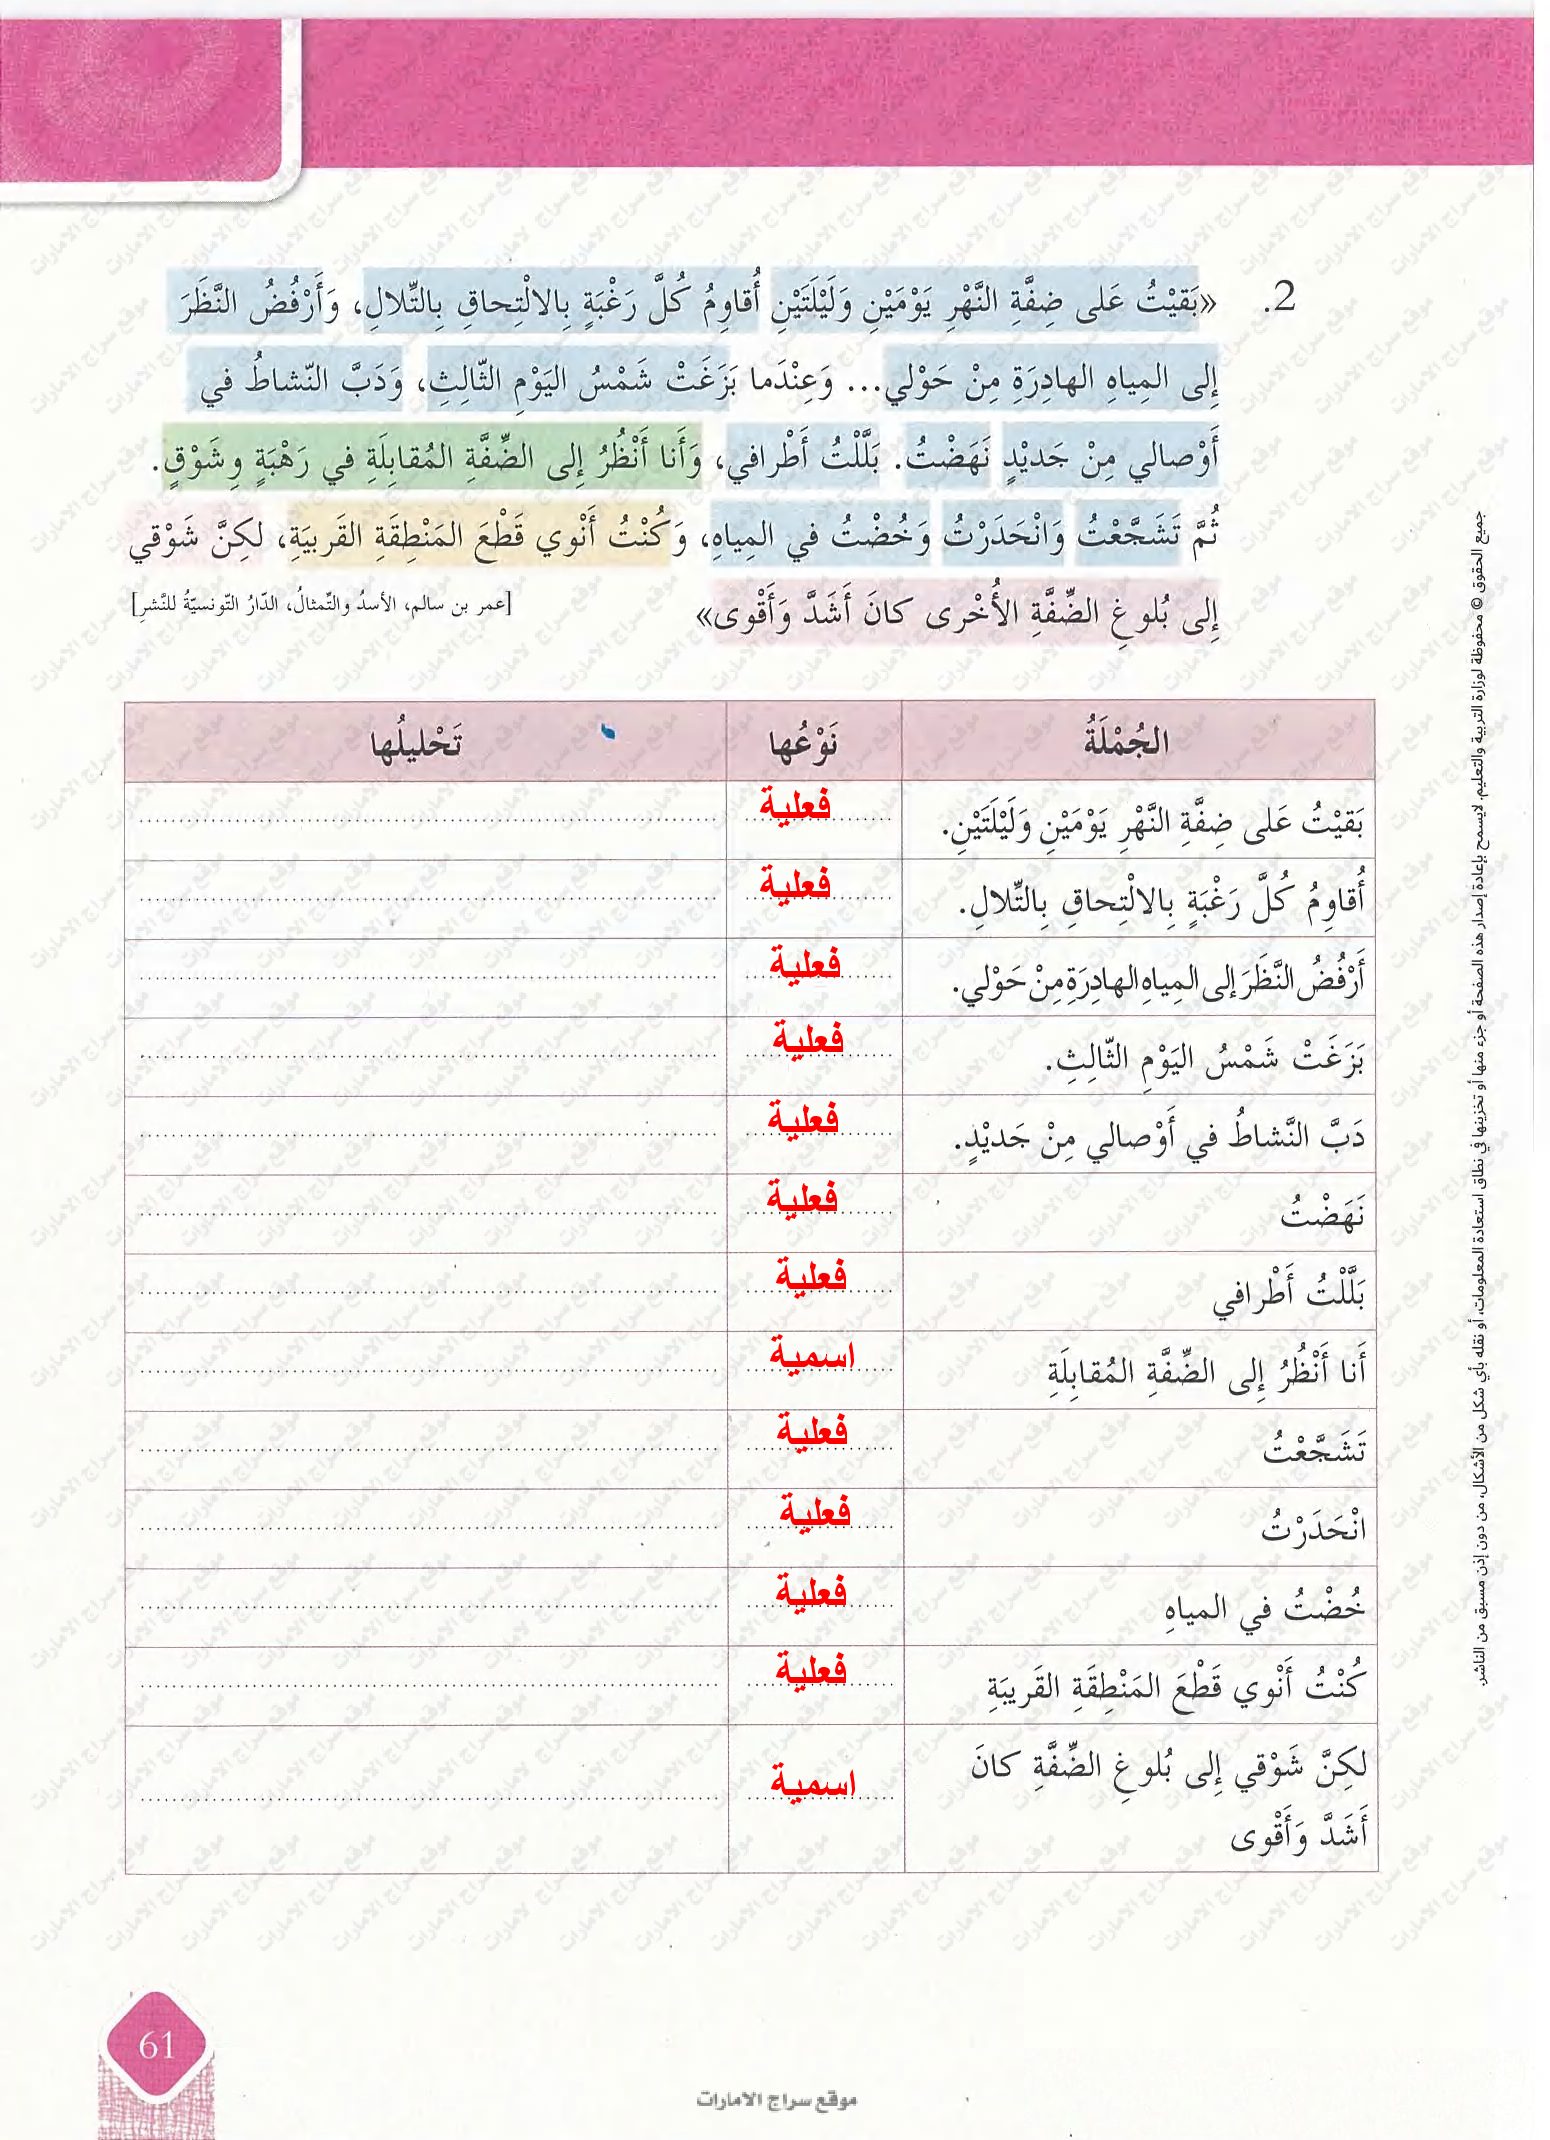 2. «بَقيْتُ عَلى ضِفَّةِ النَّهْرِ يَوْمَيْنِ وَلَيْلَتَيْنِ أُقاوِمُ كُلَّ رَغْبَةٍ بِالالْتِحاقِ بِالتِّلالِ، وَأَرْفُضُ النَّظَرَ
إِلى المِياهِ الهادِرَةِ مِنْ حَوْلي... وَعِنْدَما بَزَغَتْ شَمْسُ اليَوْمِ الثّالِثِ، وَدَبَّ النّشاطُ في
أَوْصالي مِنْ جَديْدٍ نَهَضْتُ. بَلَّلْتُ أَطْرافي، وَأَنا أَنْظُرُ إِلى الضِّفَّةِ المُقابِلَةِ في رَهْبَةٍ وِشَوْقٍ.
ثُمَّ تَشَجَّعْتُ وَانْحَدَرْتُ وَخُضْتُ في المِياهِ، وَكُنْتُ أَنْوي قَطْعَ المَنْطِقَةِ القَربيَةِ، لكِنَّ شَوْقي
إِلى بُلوغِ الضِّفَّةِ الأُخْرى كانَ أَشَدَّ وَأَقْوى»
[عمر بن سالم، الأسدُ والتّمثالُ، الدّارُ التّونسيّةُ للنَّشرِ]
الجُمْلَةُ نَوْعُها تَحْليلُها
بَقيْتُ عَلى ضِفَّةِ النَّهْرِ يَوْمَيْنِ وَلَيْلَتَيْنِ. فعلية
أُقاوِمُ كُلَّ رَغْبَةٍ بِالالْتِحاقِ بِالتِّلالِ. فعلية
أَرْفُضُ النَّظَرَ إلى المِياهِ الهادِرَةِ مِنْ حَوْلي. فعلية
بَزَغَتْ شَمْسُ اليَوْمِ الثّالِثِ. فعلية
دَبَّ النَّشاطُ في أَوْصالي مِنْ جَديْدٍ. فعلية
نَهَضْتُ فعلية
بَلَّلْتُ أَطْرافي فعلية
أَنا أَنْظُرُ إِلى الضِّفَّةِ المُقابِلَةِ اسمية
تَشَجَّعْتُ فعلية
انْحَدَرْتُ فعلية
خُضْتُ في المياهِ فعلية
كُنْتُ أَنْوي قَطْعَ المَنْطِقَةِ القَريبَةِ فعلية
لكِنَّ شَوْقي إِلى بُلوغِ الضِّفَّةِ كانَ
أَشَدَّ وَأَقْوى اسمية
جميع الحقوق © محفوظة لوزارة التربية والتعليم. لايسمح بإعادة إصدار هذه الصفحة أو جزء منها أو تخزينها في نطاق استعادة المعلومات، أو نقله بأي شكل من الأشكال، من دون إذن مسبق من الناشر
61
موقع سراج الامارات